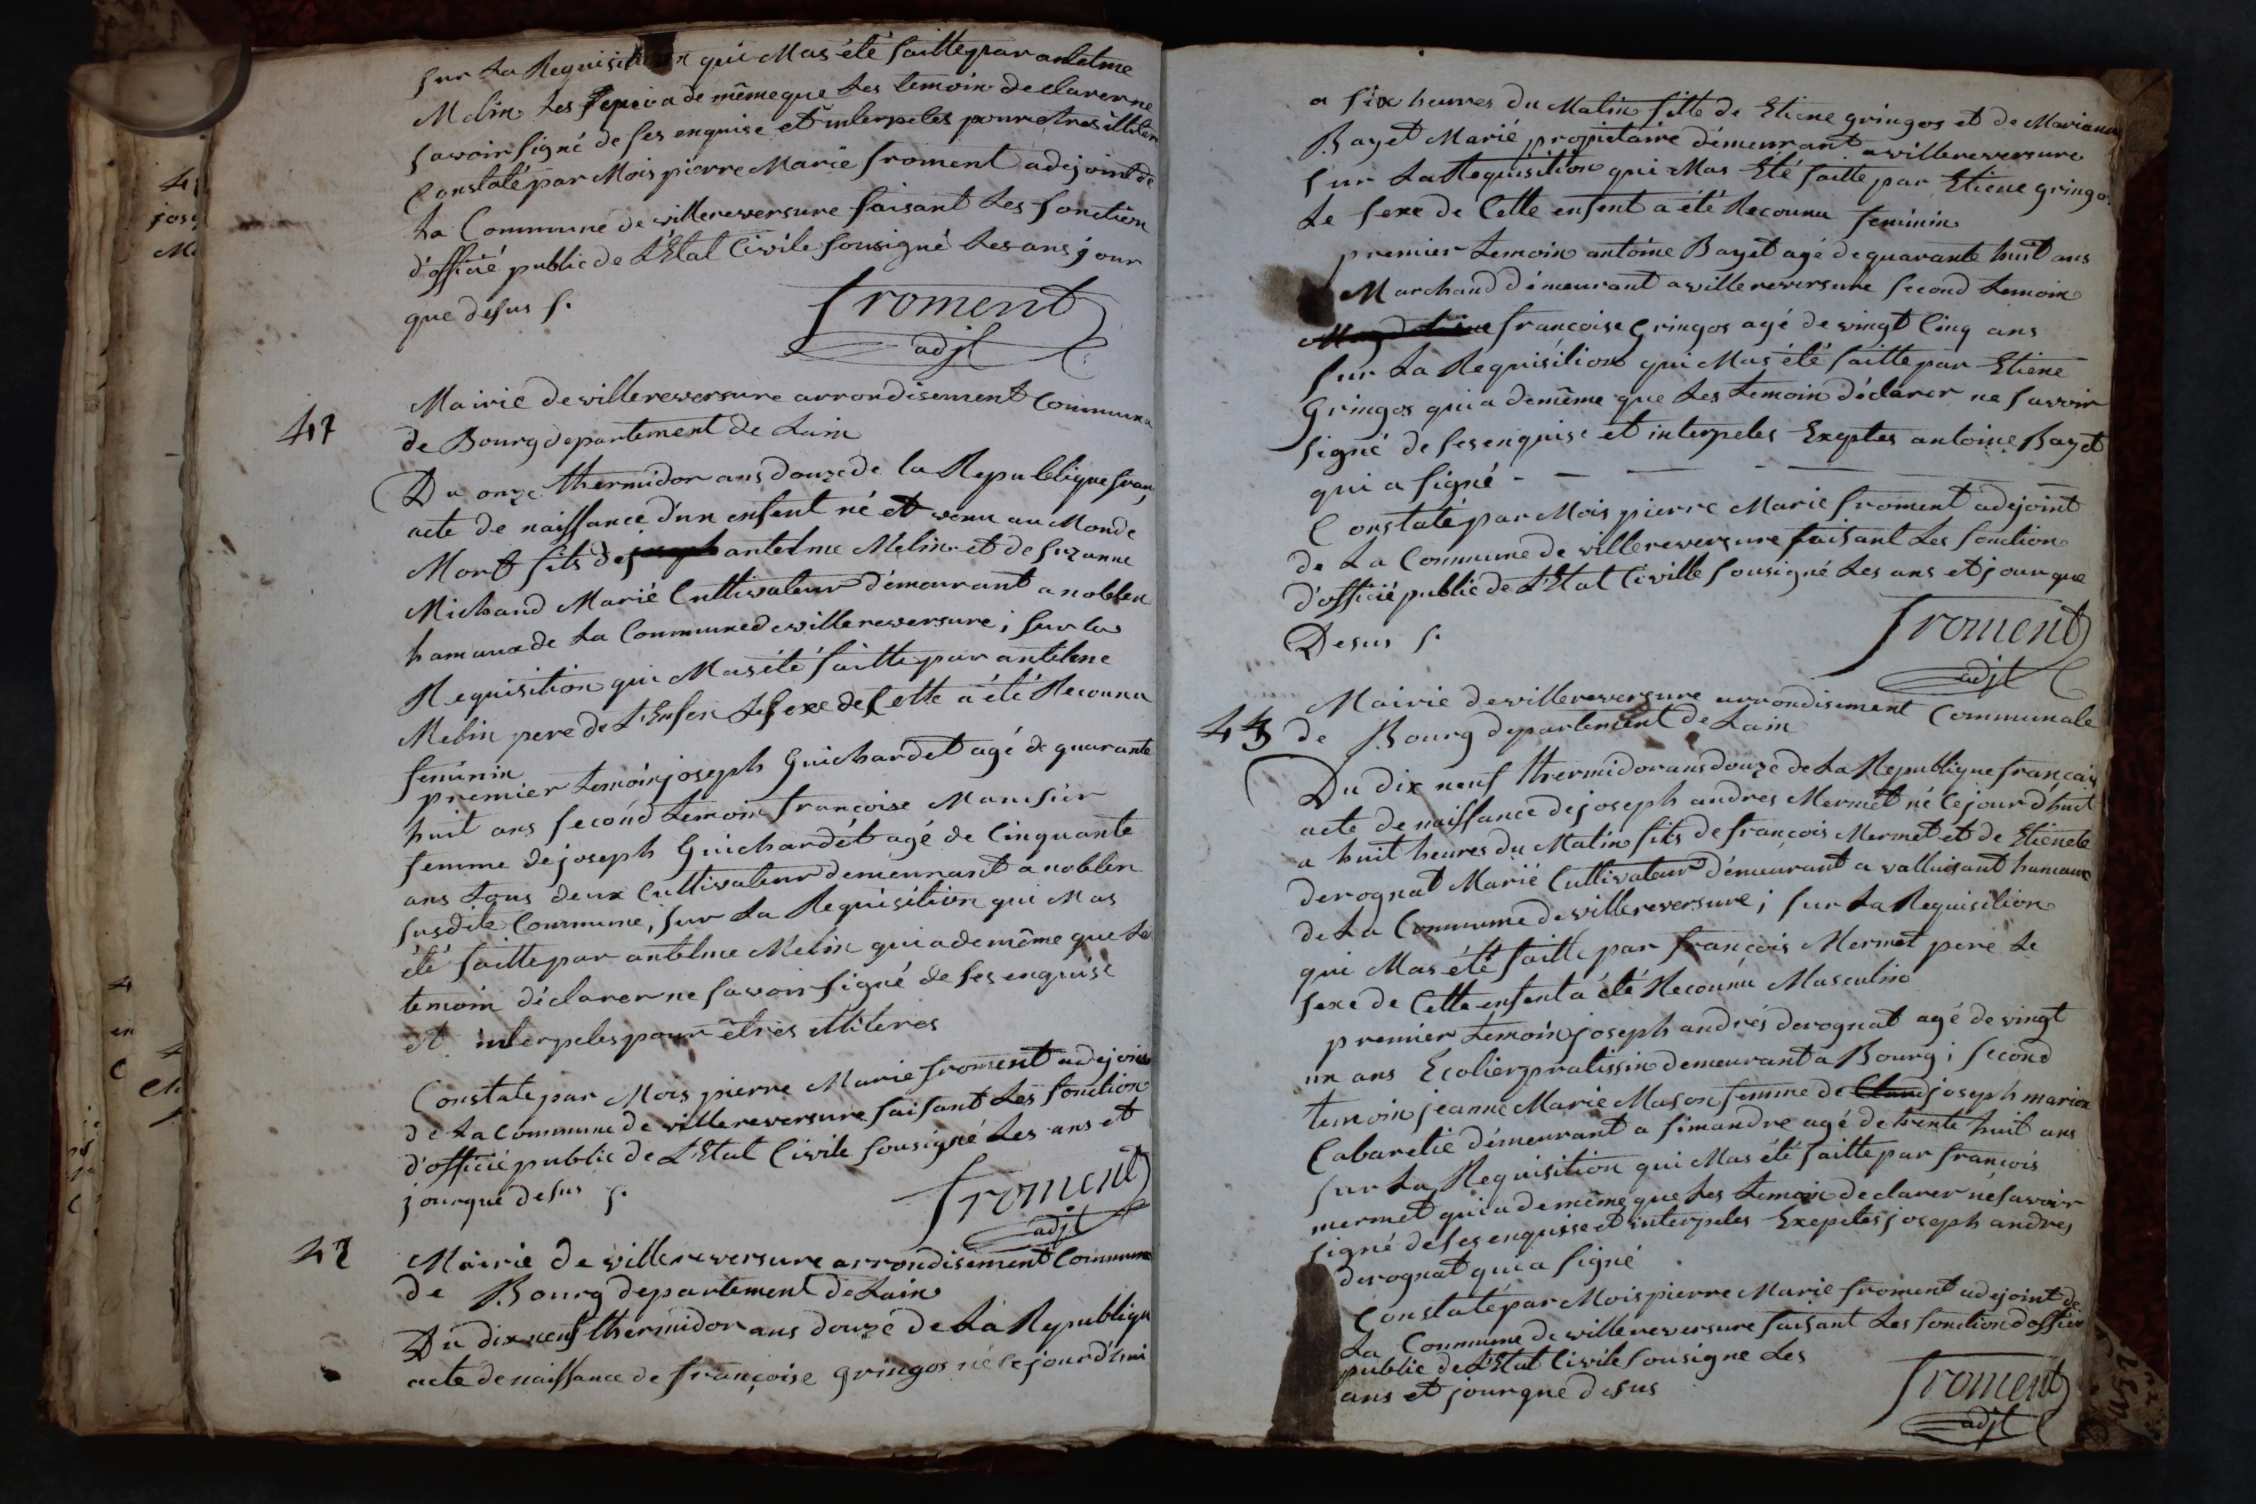 sur La Requisition qui Mas été faitte par antelme
Melin Les pere a de même que Les temoin declarer ne
savoir signé de ses enquise et interpeles pour etres illiter
Constaté par Mois pierre Marie froment adejoint de
La Commune de villereversure faisant Les fonction
d'officié public de L'Etat Civile sousigné Les ans jour
que desus s.
froment
adjt
47
Mairie de villereversure arrondisement Communa
de Bourg departement de Lain
Du onze thermidor ans douze de la Republique fran
acte de naissance d'un enfent né et venu au Monde
Mort fils de antelme Mélin et de suzanne
Michaud Marié Cultivateur démeurant a noblen
hamaux de La Commune de villereversure; sur La
Requisition qui Mas été faitte par antelme
Melin pere de L'Enfen Le sexe de Cette a été Reconnu
feminin
premier temoin joseph Guichardet agé de quarante
huit ans second temoin françoise
femme de joseph Guichardet agé de Cinquante
ans tous deux Cultivateur demeurant a noblen
susdite Commune, sur La Requisition qui Mas
été faitte par antelme Melin qui a de même que Le
temoin déclarer ne savoir signé de ses enquise
et interpeles pour êtres illiteres
Constate par Mois pierre Marie froment adejoin
de La commune de villereversure faisant Les fonction
d'officié public de L'Etat Civile sousigné Les ans et
jour que desus s.
froment
adjt
42
Mairie de villereversure arrondisement Commun
de Bourg departement de Lain
Du dix neuf thermidor ans douze de La Republiqu
acte de naissance de françoise gringos né ce jour d'hui
a six heures du Matin fille de Etiene gringos et de Mariana
Bayet Marié propriétaire démeurant a villereversure
sur La Requisition qui Mas Eté faitte par Etiene gringo
Le sexe de Cette enfent a été Reconnu feminin
premier temoin antoine Bayet agé de quarante huit ans
Marchand démeurant a villereversure second temoin
françoise Gringos agé de vingt Cinq ans
sur La Requisition qui Mas été faitte par Etiene
Gringos qui a de même que Les temoin déclarer ne savoir
signé de ses enquise et interpeles Exeptes antoine Bayet
qui a signé
Constaté par Mois pierre Marie froment adejoint
de La Commune de villereversure faisant Les fonction
d'officié public de L'Etat Civille sousigné Les ans et jour que
Desus s.
froment
adjt
43
Mairie de villereversure arrondisement Communale
de Bourg departement de Lain
Du dix neuf thermidor ans douze de La Republique françai
acte de naissance de joseph andres Mermet né ce jour d'huit
a huit heures du Matin fils de françois Mermet et de Etienete
derognat Marié Cultivateur démeurant a valluisant hamaux
de La Commune de villereversure; sur La Requisition
qui Mas été faitte par françois Mermet pere Le
sexe de Cette enfent a été Reconnu Masculin
premier temoin joseph andrés derognat agé de vingt
un ans Ecolier pratissin demeurant a Bourg; second
temoin jeanne Marie Mason femme de joseph marion
Cabaretié démeurant a simandre agé de trente huit ans
sur La Requisition qui Mas été faitte par françois
mermet qui a de même que Les temoin declarer ne savoir
signé de ses enquisse et interpeles Exepetes joseph andres
derognat qui a signé
Constaté par Mois pierre Marie froment adejoint de
La Commune de villereversure faisant Les fonction d'officié
public de L'Etat Civile sousigne Les
ans et jour que desus
froment
adjt